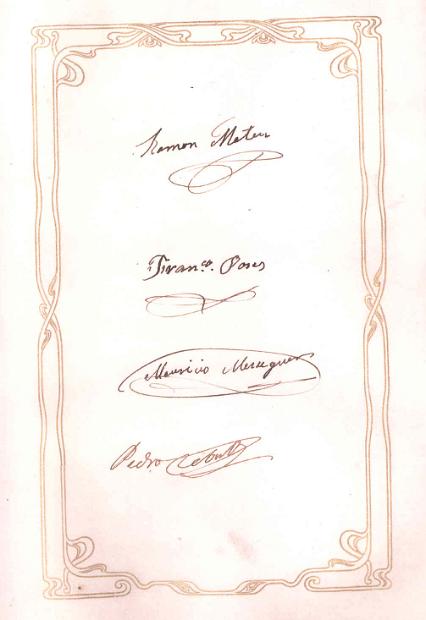 Ramon Mateu
Franco. Poses
Mauricio Meseguer
Pedro